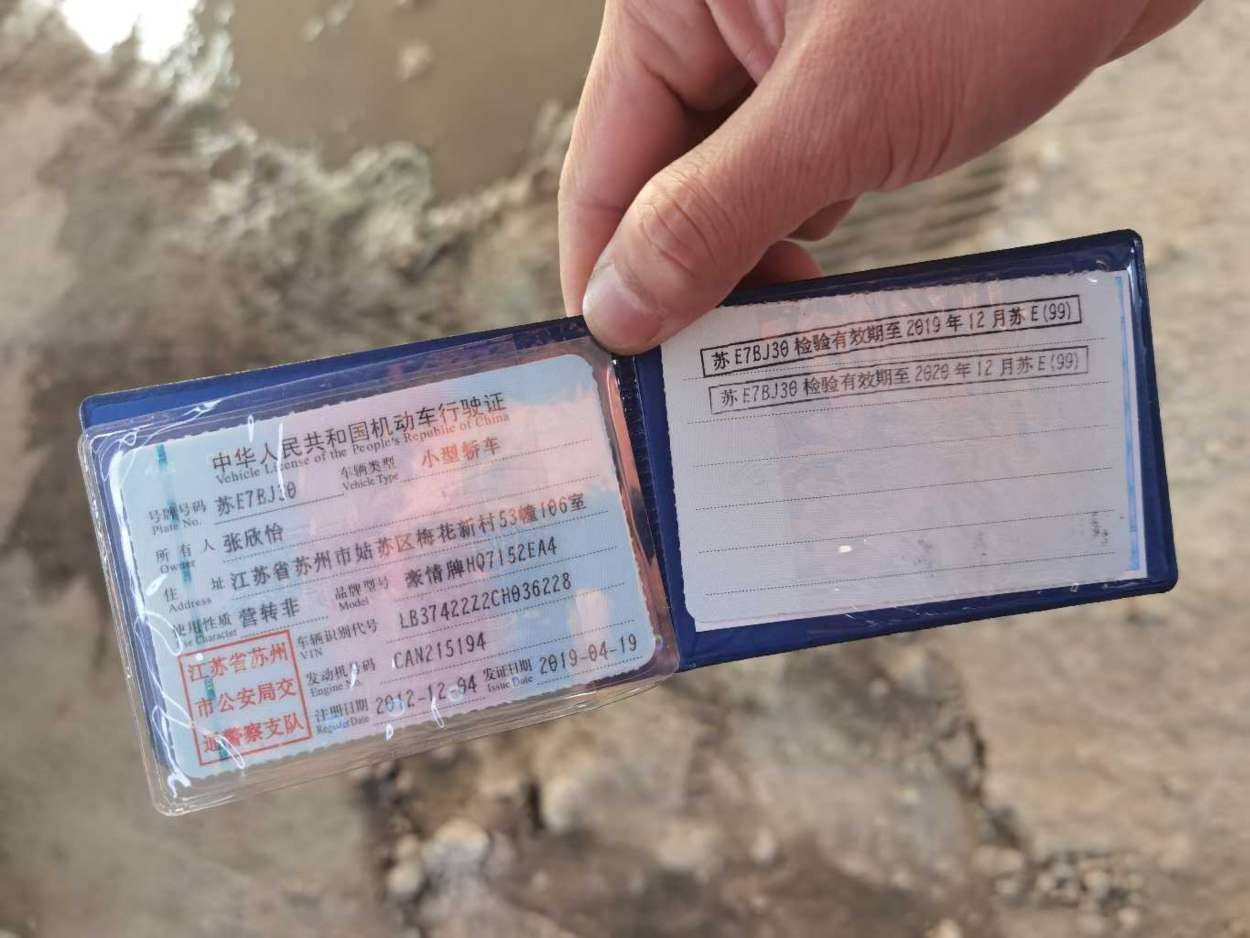 中华人民共和国机动车行驶证
Vehicle License of the People's Republic of China
号牌号码 苏E7BJ30 车辆类型 小型轿车
Plate No. Vehicle Type
所有人 张欣怡
Owner
住址 江苏省苏州市姑苏区梅花新村53幢106室
Address
使用性质 营转非 品牌型号 豪情牌HQ7152EA4
Use Character Model
江苏省苏州
市公安局交
通警察支队
车辆识别代号 LB37422Z2CH036228
VIN
发动机号码 CAN215194
Engine No.
注册日期 2012-12-04 发证日期 2019-04-19
Register Date Issue Date
苏E7BJ30检验有效期至2019年12月苏E(99)
苏E7BJ30检验有效期至2020年12月苏E(99)